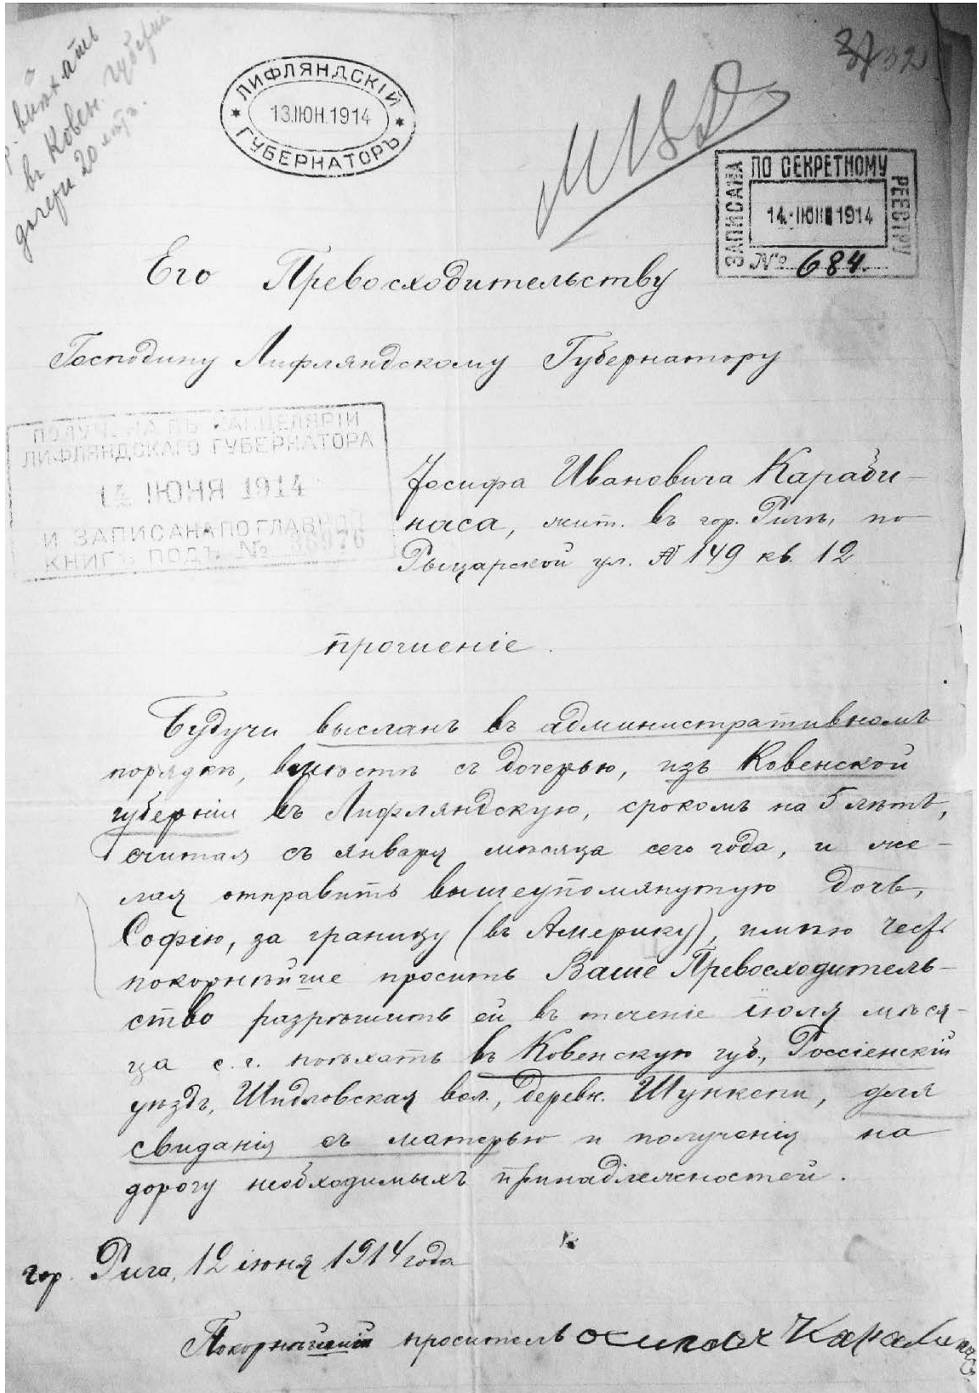 выѣхать
въ Ковен. губерн
дочери 20 лѣтъ.
ЛИФЛЯНДСКІЙ
13 ІЮН. 1914
ГУБЕРНАТОРЪ
32
ЗАПИСАНА ПО СЕКРЕТНОМУ РЕЕСТРУ
14 ІЮН 1914
№ 684.
Его Превосходительству
Господину Лифляндскому Губернатору
ПОЛУЧЕНА ВЪ КАНЦЕЛЯРІИ
ЛИФЛЯНДСКАГО ГУБЕРНАТОРА
14 ІЮНЯ 1914
И ЗАПИСАНА ПО ГЛАВНОЙ
КНИГѢ ПОДЪ № 36976
Іосифа Ивановича Караби-
наса, жит. въ гор. Ригѣ, по
Рыцарской ул. № 149 кв. 12
прошеніе.
Будучи высланъ въ административномъ
порядкѣ, вмѣстѣ съ дочерью, изъ Ковенской
губерніи въ Лифляндскую, срокомъ на 5 лѣтъ,
считая съ января мѣсяца сего года, и же-
лая отправить вышеупомянутую дочь,
Софію, за границу (въ Америку), имѣю честь
покорнѣйше просить Ваше Превосходитель-
ство разрѣшить ей въ теченіе іюля мѣся-
ца с. г. поѣхать въ Ковенскую губ., Россіенскій
уѣздъ, Шидловская вол., деревн. Шункени, для
свиданія съ матерью и полученія на
дорогу необходимыхъ принадлежностей.
гор. Рига, 12 іюня 1914 года
Покорнѣйшій проситель